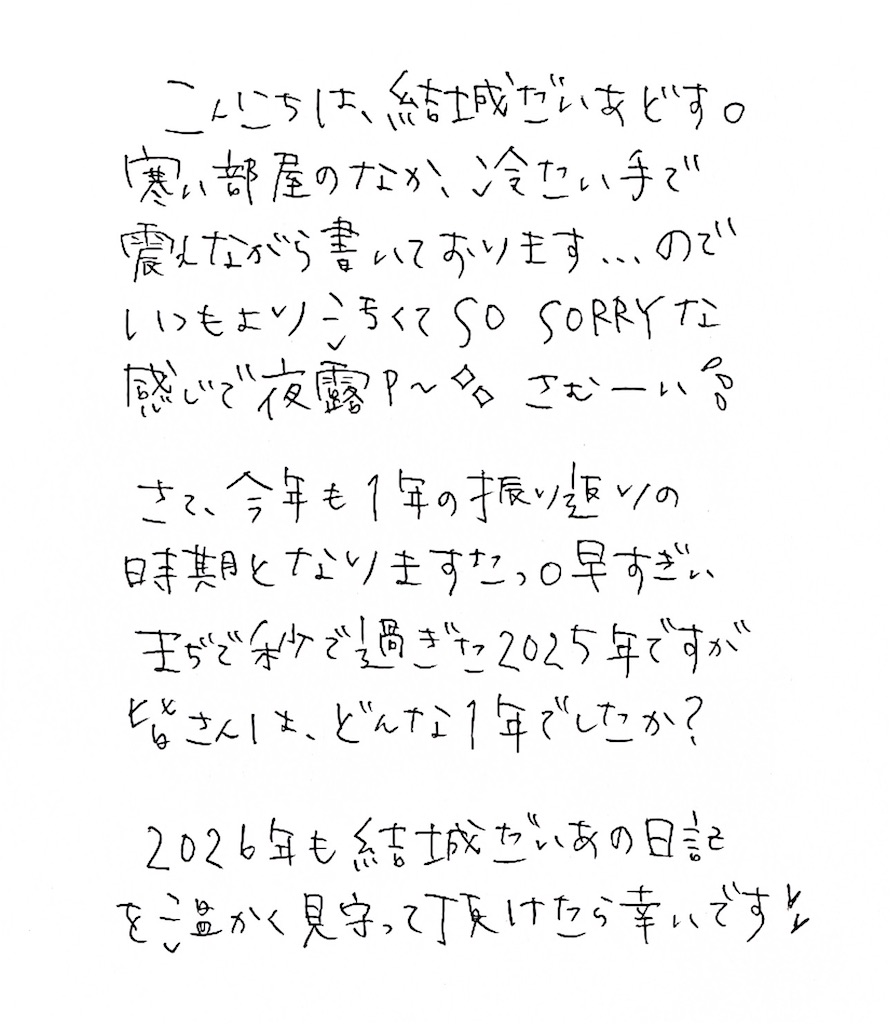 こんにちは、結城だいあどす。
寒い部屋のなか、冷たい手で
震えながら書いております...ので
いつもより汚くてSO SORRYな
感じで夜露P〜 さむーい
さて、今年も1年の振り返りの
時期となりますたっ。早すぎい
まぢで秒で過ぎた2025年ですが
皆さんは、どんな1年でしたか?
2026年も結城だいあの日記
を温かく見守って頂けたら幸いです